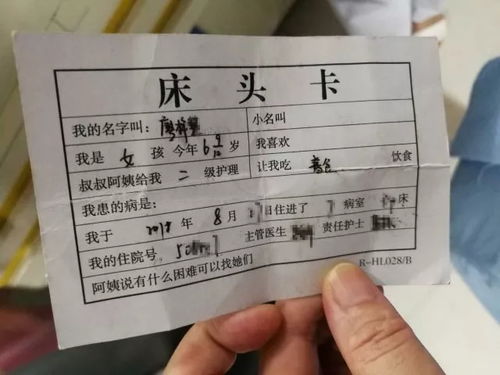 床 头 卡
我的名字叫： 小名叫
我是 女 孩 今年 6 9/12 岁 我喜欢
叔叔阿姨给我 二 级护理 让我吃 普食 饮食
我患的病是：
我于 2018 年 8 月 日住进了 病室 床
我的住院号 主管医生 责任护士
阿姨说有什么困难可以找她们
R-HL028/B